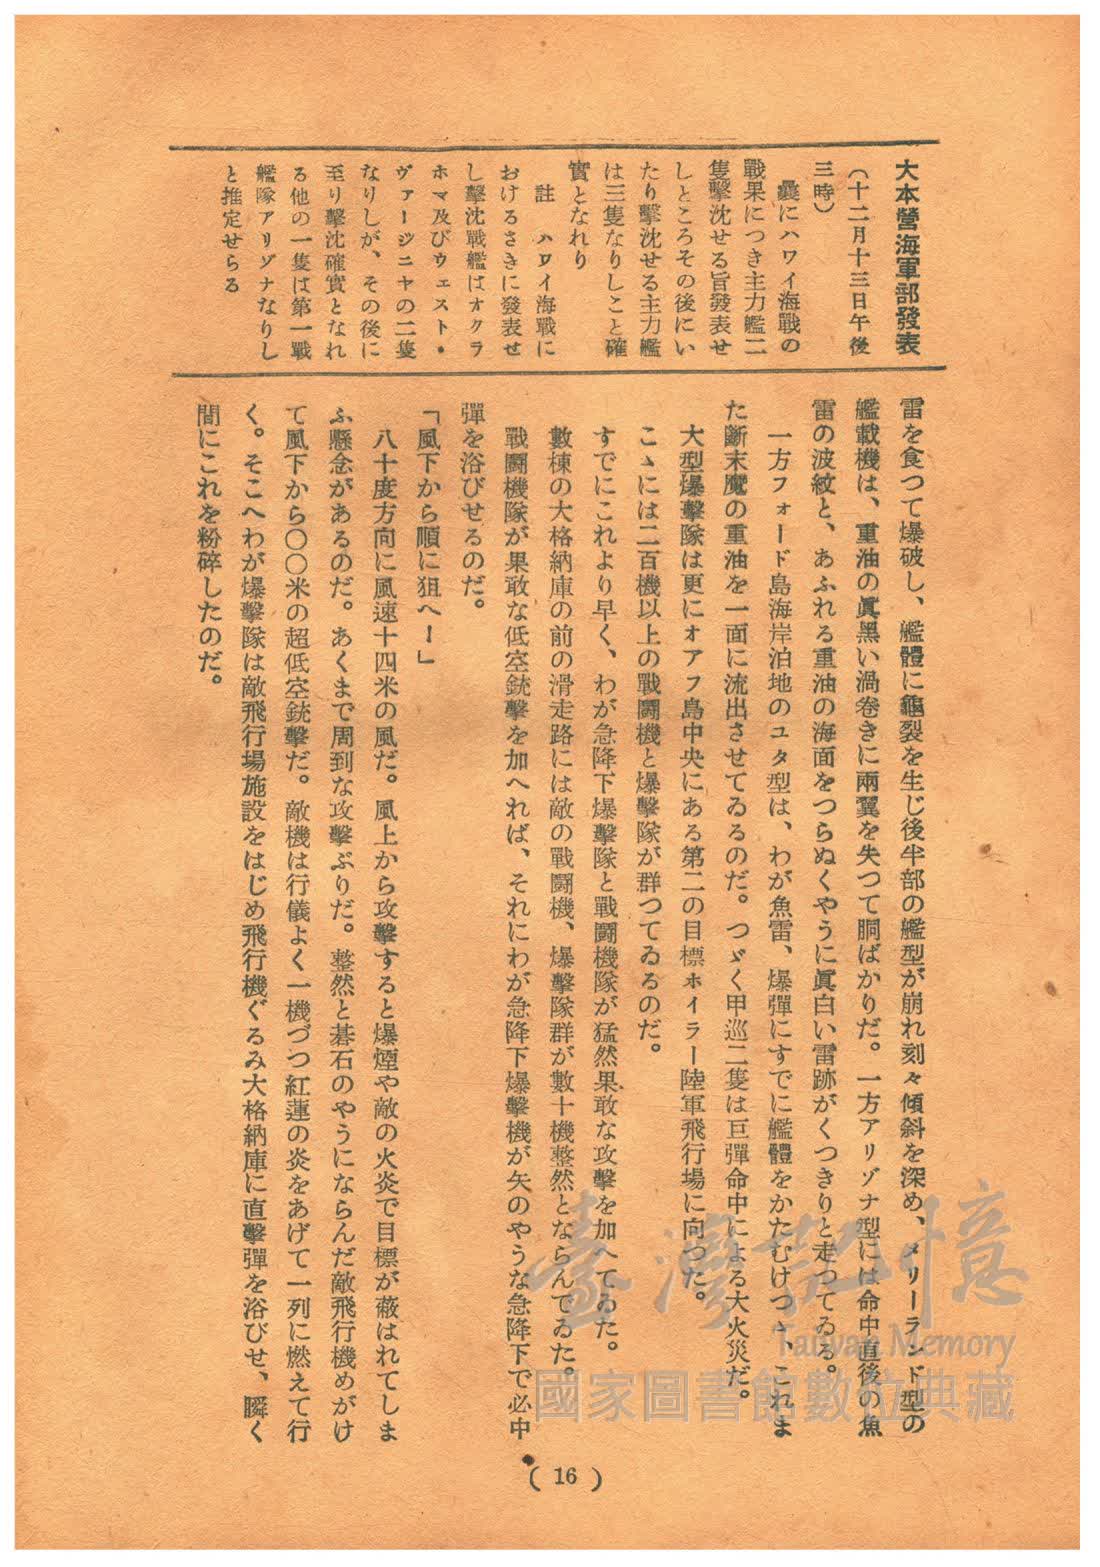 大本營海軍部發表
(十二月十三日午後
三時)
曩にハワイ海戰の
戰果につき主力艦二
隻擊沈せる旨發表せ
しところその後にい
たり擊沈せる主力艦
は三隻なりしこと確
實となれり
註　ハワイ海戰に
おけるさきに發表せ
し擊沈戰艦はオクラ
ホマ及びウェスト・
ヴァージニヤの二隻
なりしが、その後に
至り擊沈確實となれ
る他の一隻は第一戰
艦隊アリゾナなりし
と推定せらる
雷を食つて爆破し、艦體に龜裂を生じ後半部の艦型が崩れ刻々傾斜を深め、メリーランド型の
艦載機は、重油の眞黑い渦卷きに兩翼を失つて胴ばかりだ。一方アリゾナ型には命中直後の魚
雷の波紋と、あふれる重油の海面をつらぬくやうに眞白い雷跡がくつきりと走つてゐる。
一方フォード島海岸泊地のユタ型は、わが魚雷、爆彈にすでに艦體をかたむけつゝ、これま
た斷末魔の重油を一面に流出させてゐるのだ。つゞく甲巡二隻は巨彈命中による大火災だ。
大型爆擊隊は更にオアフ島中央にある第二の目標ホイラー陸軍飛行場に向つた。
こゝには二百機以上の戰鬪機と爆擊隊が群つてゐるのだ。
すでにこれより早く、わが急降下爆擊隊と戰鬪機隊が猛然果敢な攻擊を加へてゐた。
數棟の大格納庫の前の滑走路には敵の戰鬪機、爆擊隊群が數十機整然とならんでゐた。
戰鬪機隊が果敢な低空銃擊を加へれば、それにわが急降下爆擊機が矢のやうな急降下で必中
彈を浴びせるのだ。
「風下から順に狙へー」
八十度方向に風速十四米の風だ。風上から攻擊すると爆煙や敵の火炎で目標が蔽はれてしま
ふ懸念があるのだ。あくまで周到な攻擊ぶりだ。整然と碁石のやうにならんだ敵飛行機めがけ
て風下から〇〇米の超低空銃擊だ。敵機は行儀よく一機づつ紅蓮の炎をあげて一列に燃えて行
く。そこへわが爆擊隊は敵飛行場施設をはじめ飛行機ぐるみ大格納庫に直擊彈を浴びせ、瞬く
間にこれを粉碎したのだ。
(16)
臺灣記憶
Taiwan Memory
國家圖書館數位典藏